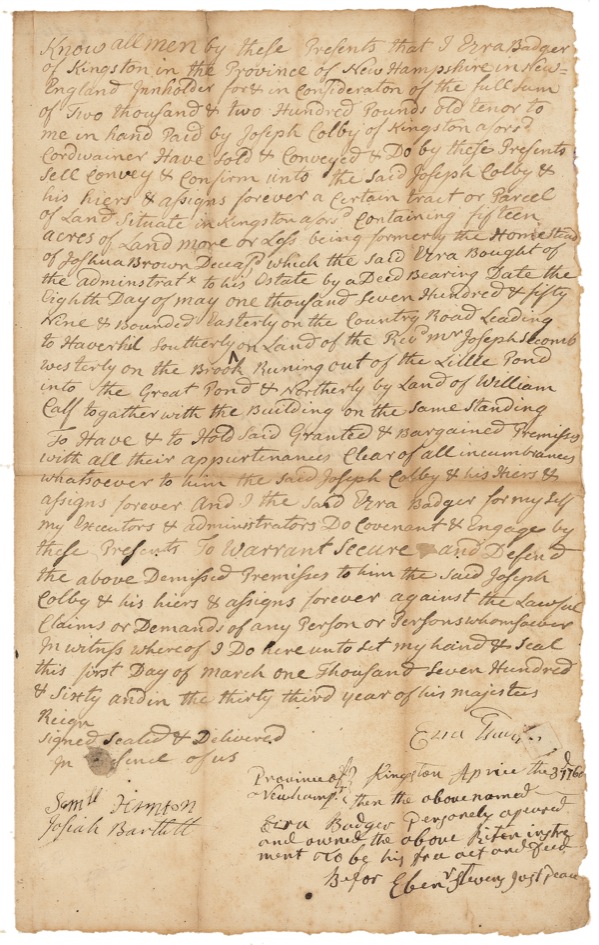 Know all men by these Presents that I Ezra Badger
of Kingston in the Province of New Hampshire in New=
England Innholder for & in Consideraton of the full sum
of Two thousand & two Hundred Pounds old tenor to
me in hand Paid by Joseph Colby of Kingston aforsd
Cordwainer Have Sold & Conveyed & Do by these Presents
Sell Convey & Confirm unto the said Joseph Colby &
his hiers & assigns forever a Certain tract or Parcel
of Land Situate in Kingston aforsd Containing fifteen
acres of Land more or Less being formerly the Homestead
of Joshua Brown Deceasd which the said Ezra Bought of
the adminstratx to his Estate by a Deed Bearing Date the
Eighth Day of may one thousand Seven Hundred & fifty
Nine & Bounded Easterly on the Country Road Leading
to Haverhil Southerly on Land of the Revd mr Joseph Secomb
westerly on the Brook Runing out of the Little Pond
into the Great Pond & Northerly by Land of William
Calf togather with the Building on the Same Standing
To Have & to Hold Said Granted & Bargained Premisses
with all their appurtenances Clear of all incumbrances
whatsoever to him the said Joseph Colby & his Hiers &
assigns forever And I the said Ezra Badger for my Self
my Executors & administrators Do Covenant & Engage by
these Presents To Warrant Secure and Defend
the above Demissed Premisses to him the Said Joseph
Colby & his hiers & assigns forever against the Lawful
Claims or Demands of any Person or Persons whomsoever
In witness whereof I Do here unto Set my hand & Seal
this first Day of march one Thousand Seven Hundred
& Sixty and in the thirty third year of his majestes
Reign
Signed Sealed & Delivered
In of us
Ezra
Province of Kingston the 3d 1760
Newhampr then the above named
Ezra Badger Personely apeared
and owned the above Riten instru
ment to be his fre act and deed
Befor Ebenr Stevens Just peace
Samll
Josiah Bartlett